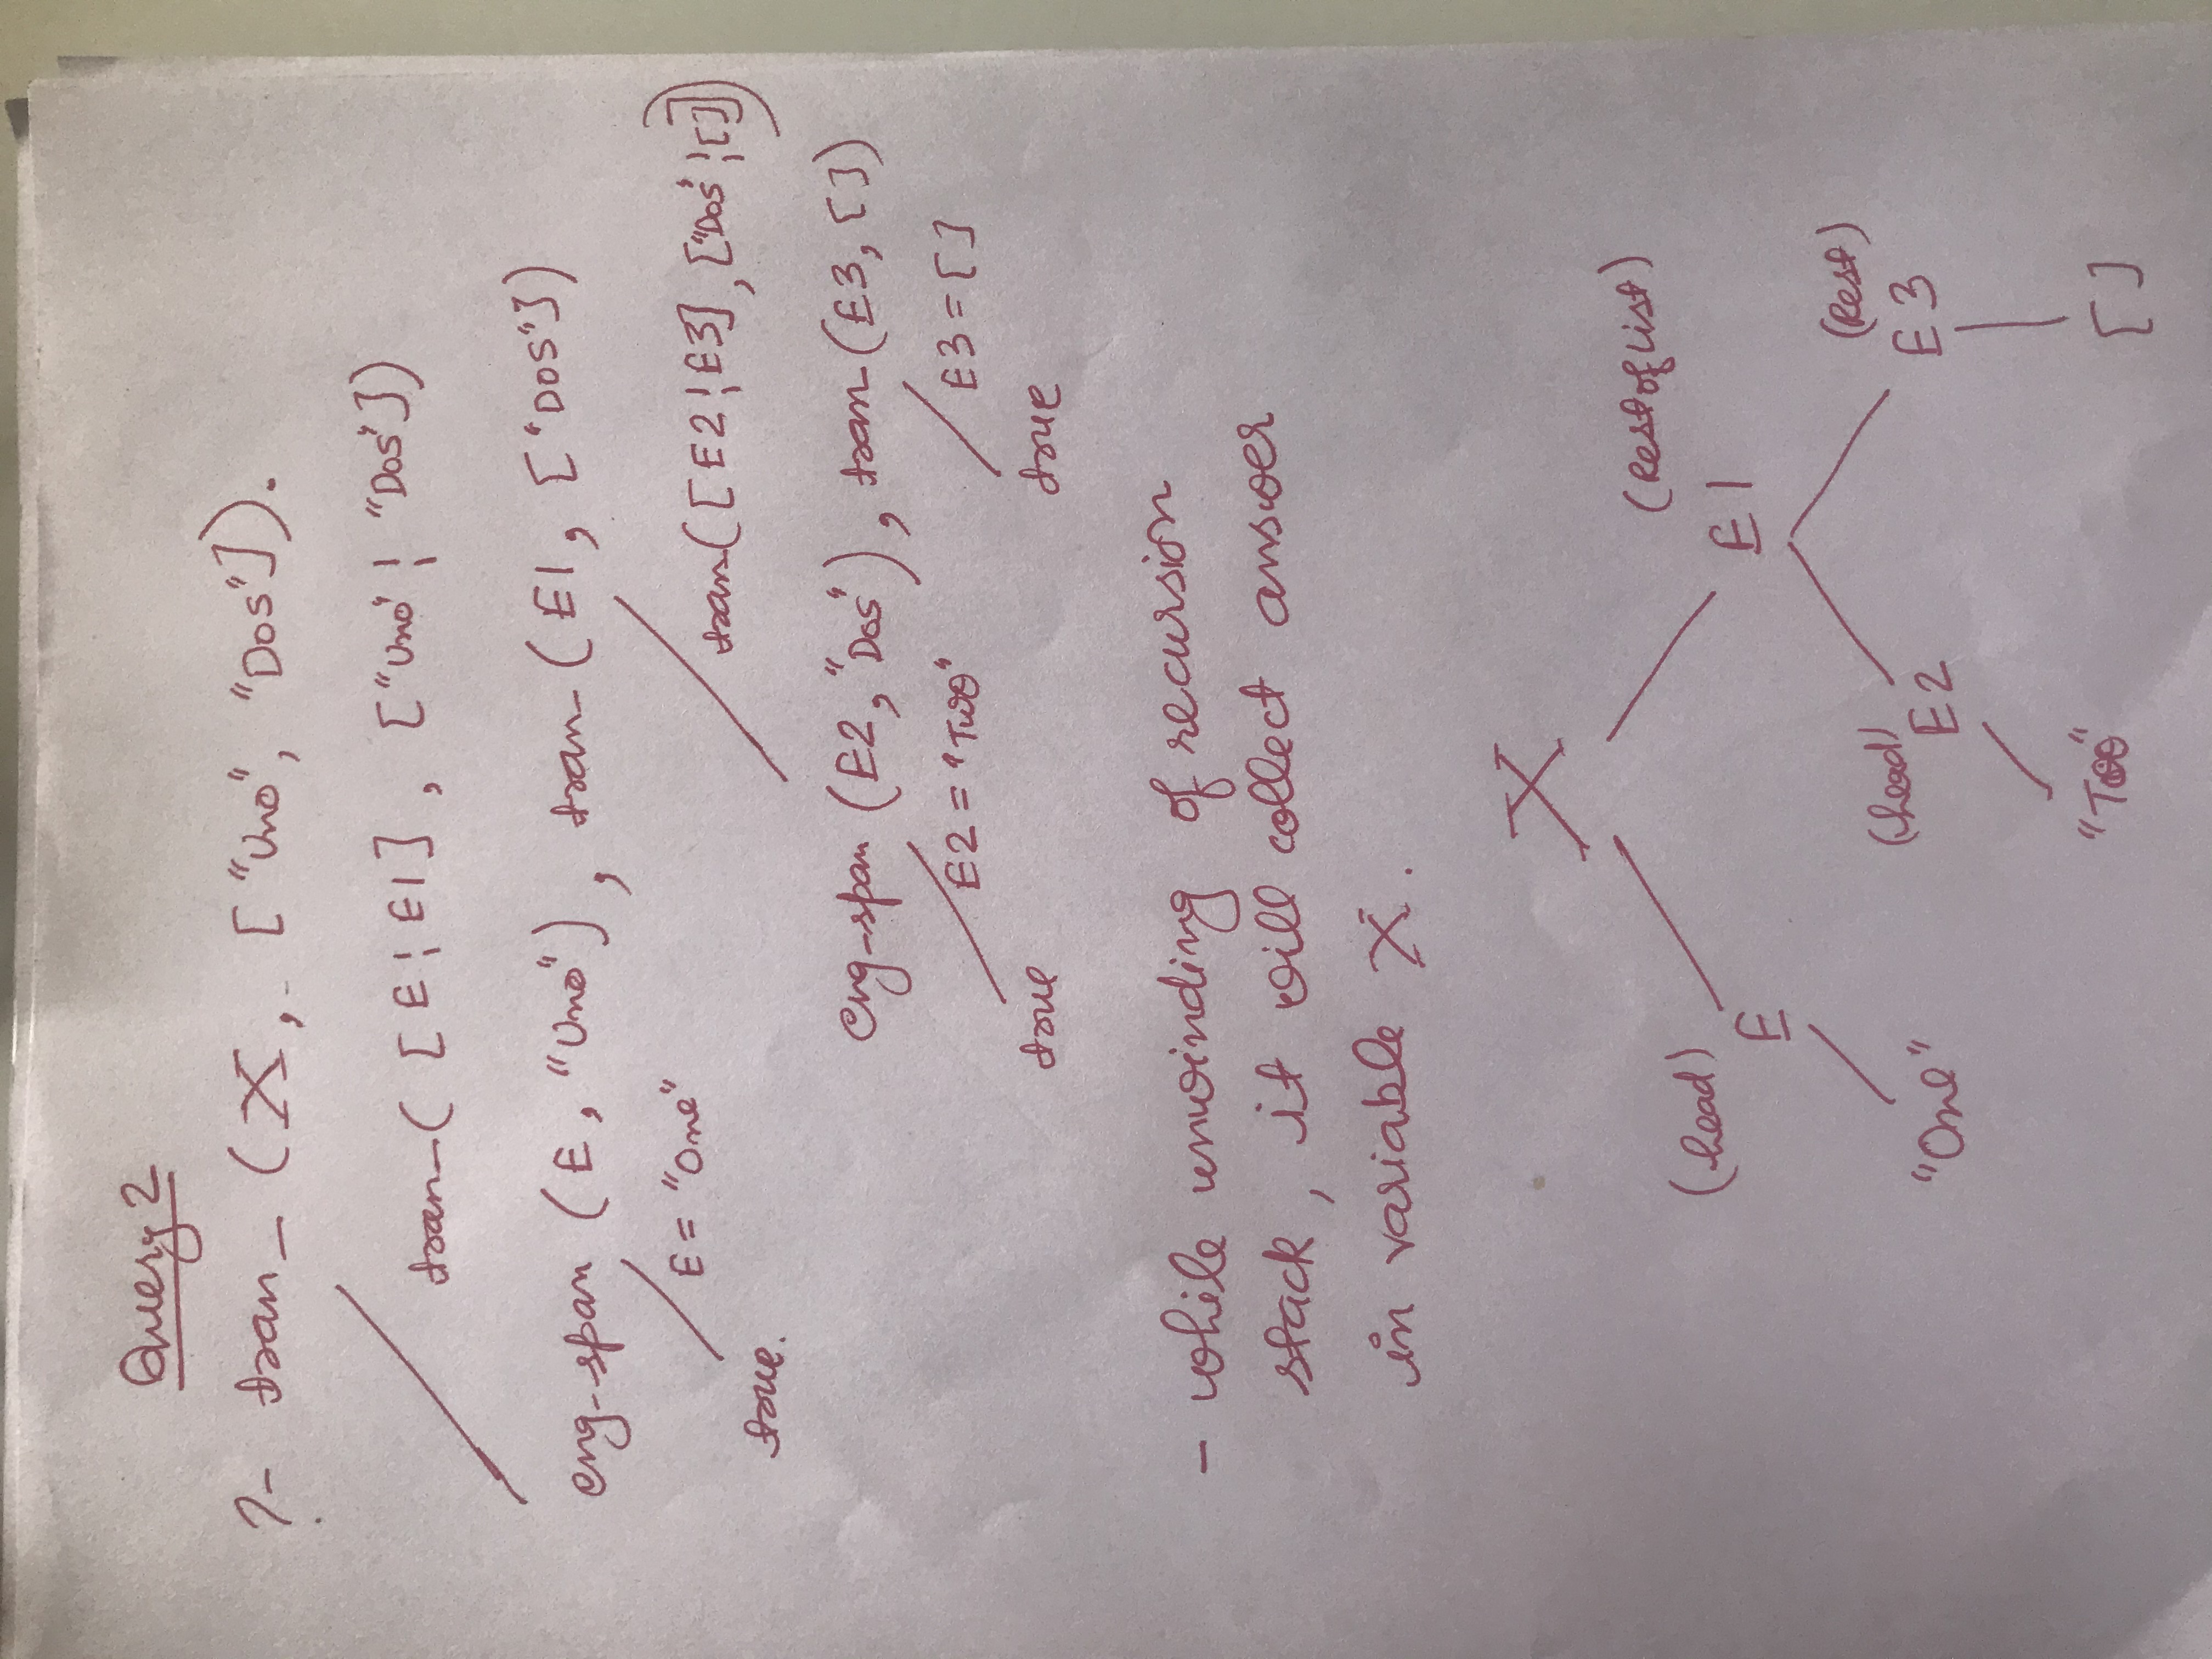 Query 2
?- tran_ (X, ["Uno", "Dos"]).
tran_( [E¦E1], ["Uno" ¦ "Dos"])
eng_span (E, "Uno"), tran_(E1, ["DOS"])
E = "One"
true.
tran_([E2¦E3], ["Dos" ¦[]])
eng_span (E2, "Dos"), tran_(E3, [])
E2 = "Two" E3 = []
true true
- while unwinding of recursion
stack, it will collect answer
in variable X.
X
(head) (Rest of List)
E E1
(head) (Rest)
"One" E2 E3
"Two" []